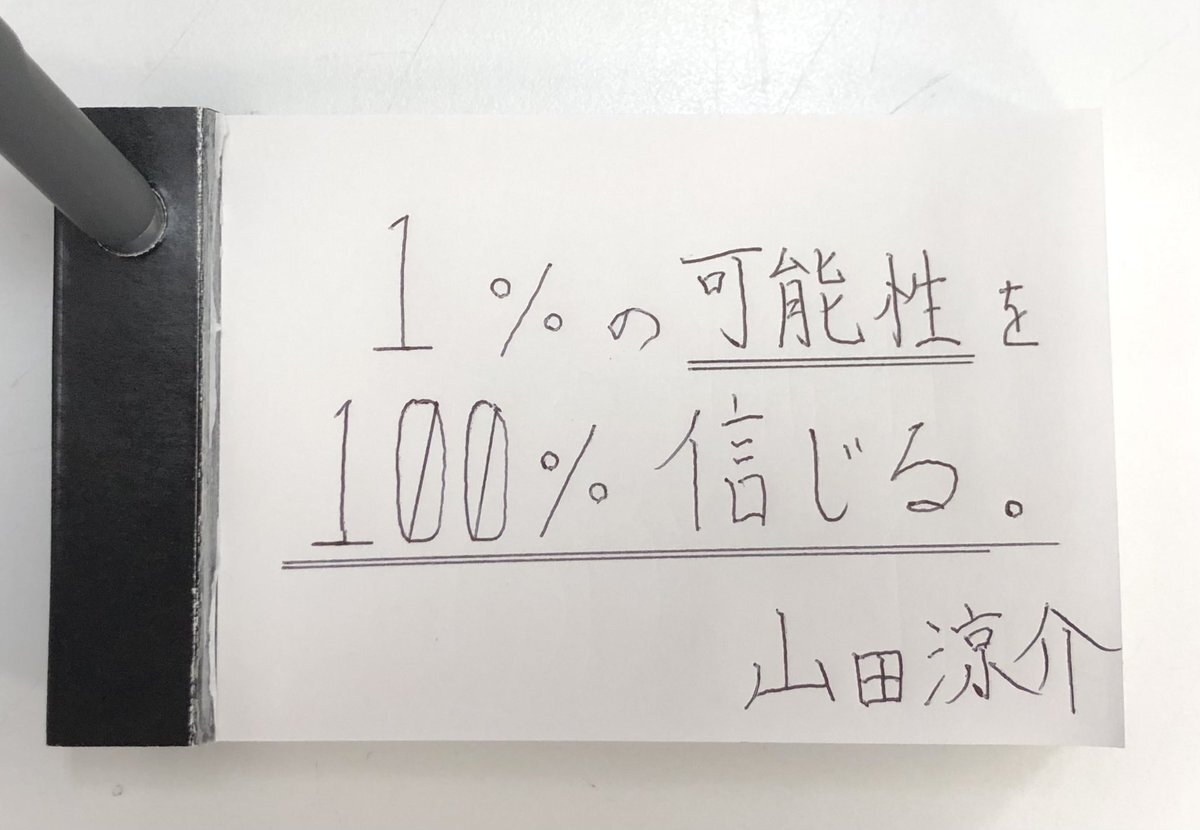 1%の可能性を
100%信じる。
山田涼介